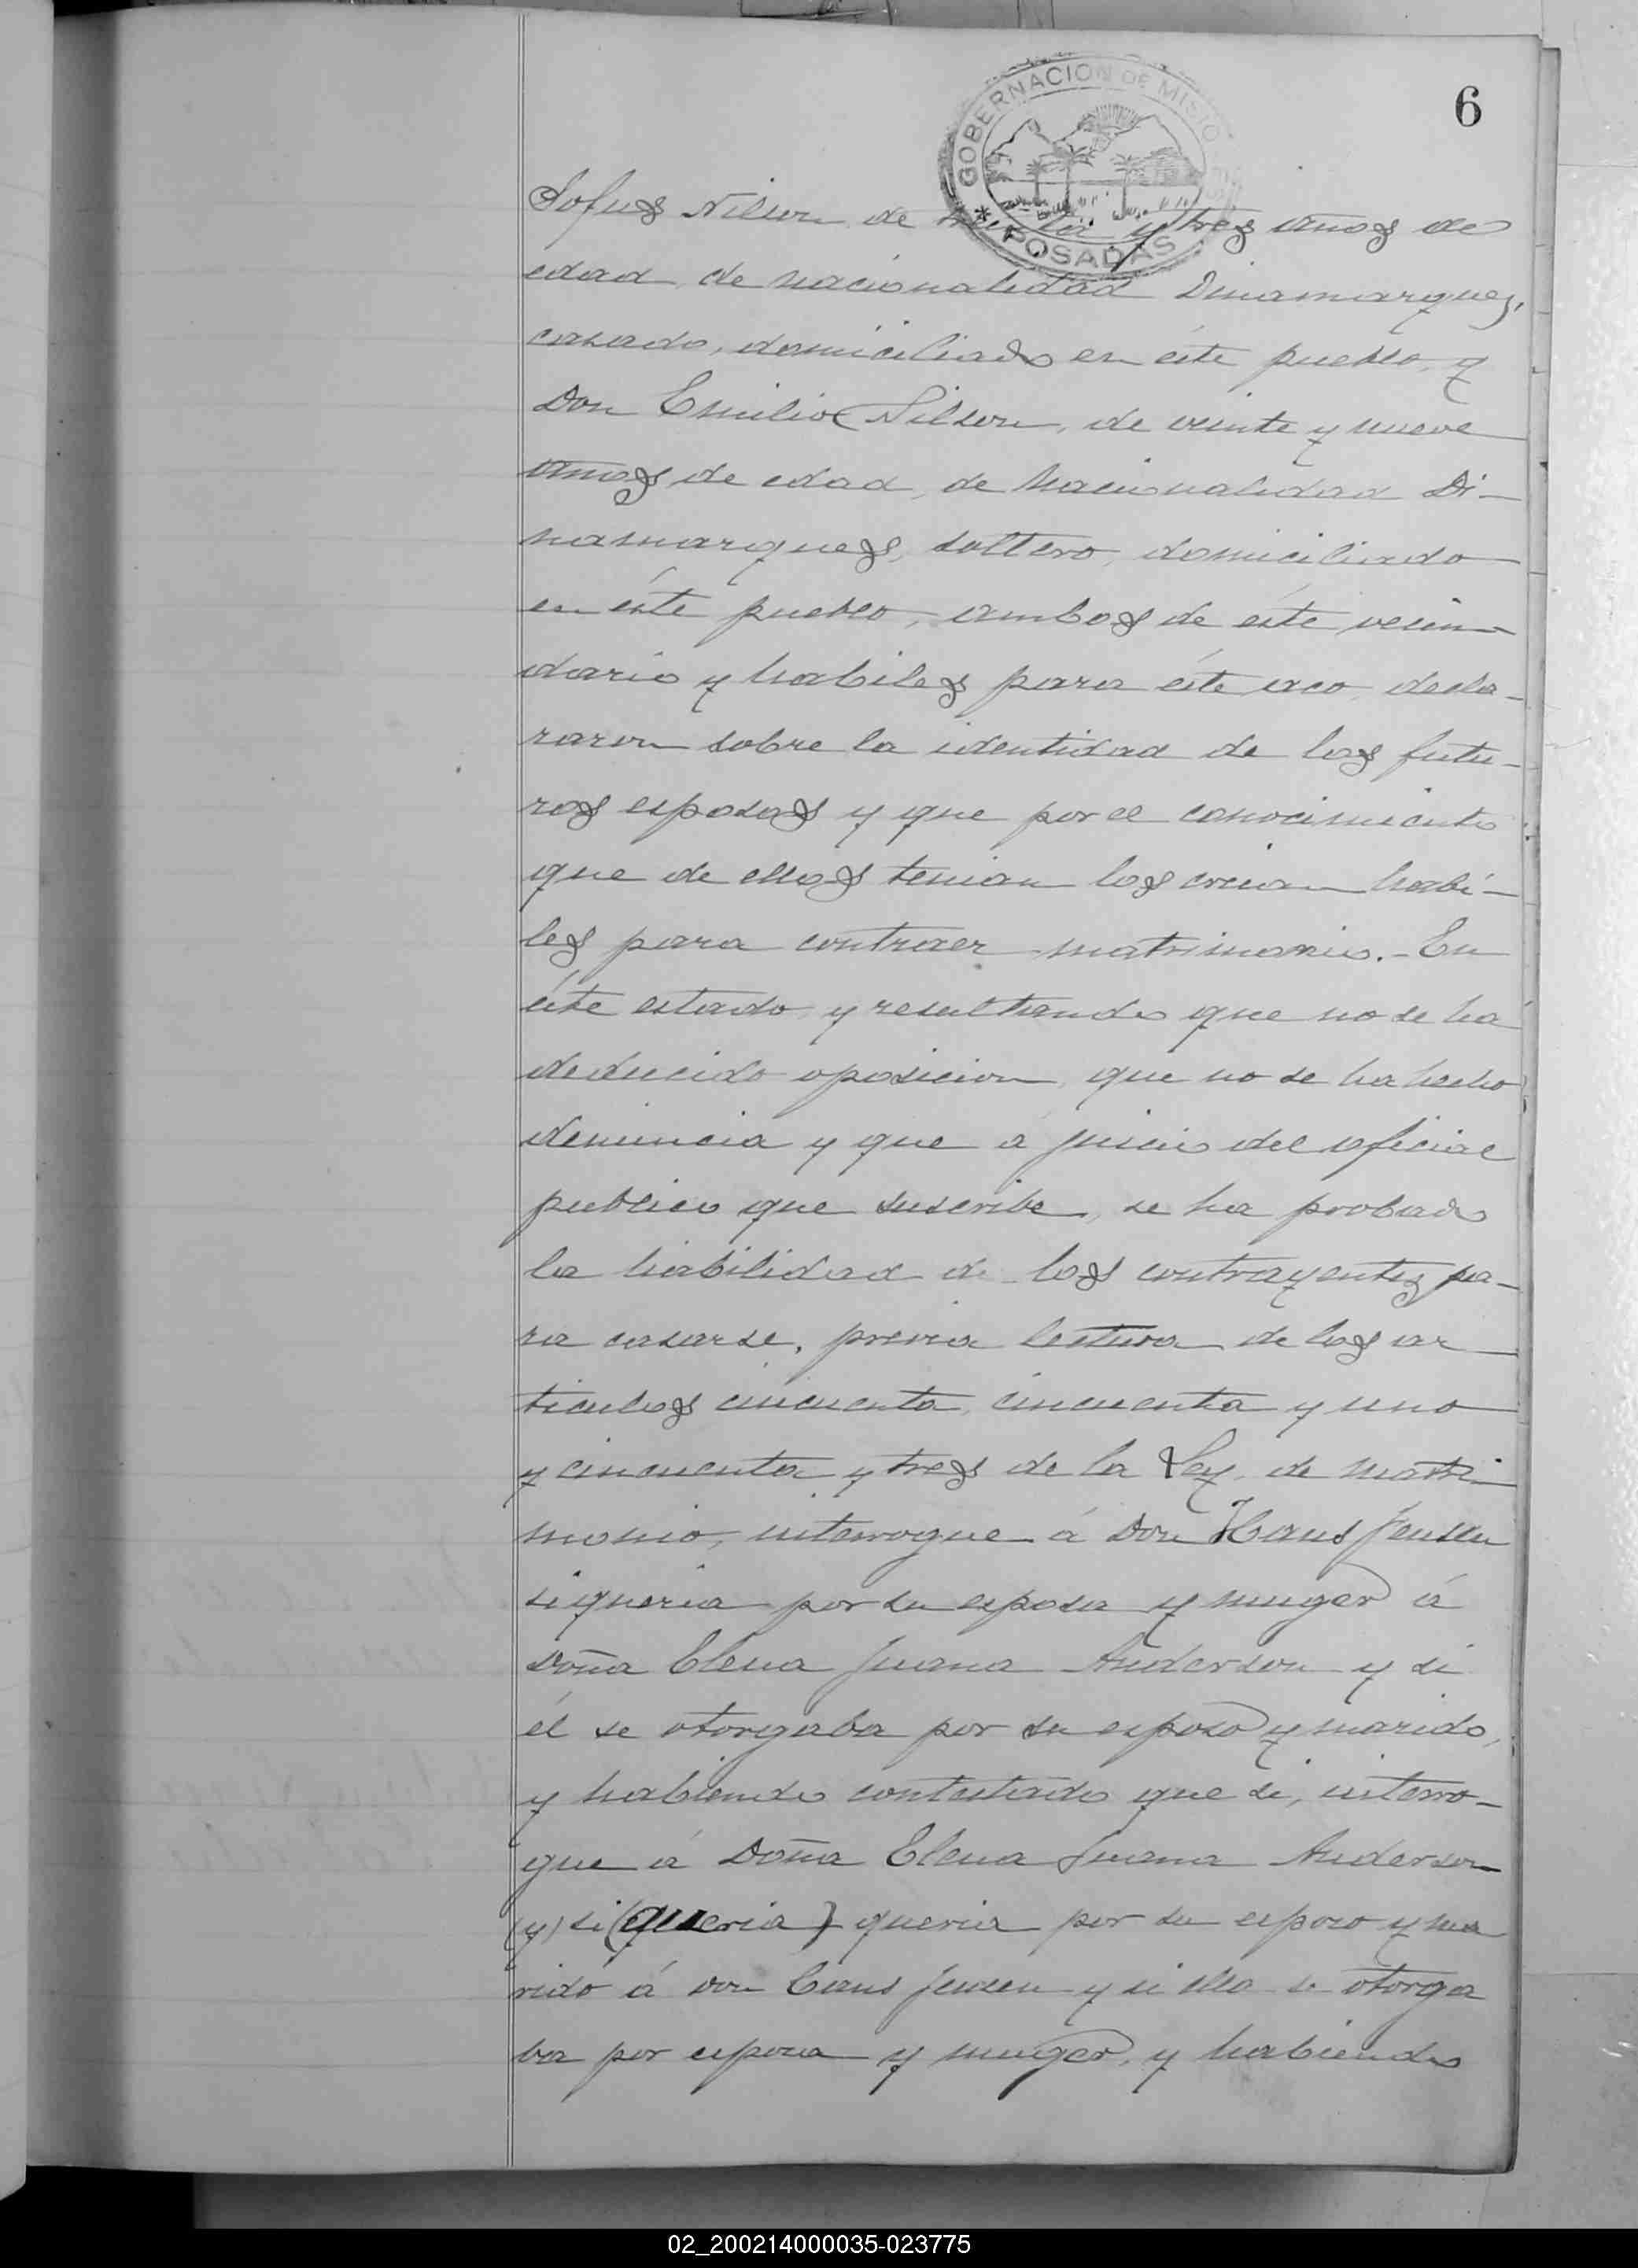 6
GOBERNACION DE MISIO
* POSADAS
Sofus Nilson de treinta y tres años de
edad, de nacionalidad Dinamarquez,
casado, domiciliado en éste pueblo, y
Don Emilio Nilson, de veinte y nueve
años de edad, de nacionalidad Di-
namarques, soltero, domiciliado
en éste pueblo, ambos de éste vecin-
dario y habiles para éste aco, decla-
raron sobre la identidad de los futu-
ros esposos y que por el conocimiento
que de ellos tenian los creian habi-
les para contraer matrimonio.- En
éste estado y resultando que no se ha
deducido oposicion, que no se ha hecho
denuncia y que á juicio del oficial
publico que suscribe, se ha probado
la habilidad de los contrayentes pa-
ra casarse, previa lectura de los ar
ticulos cincuenta, cincuenta y uno
y cincuenta y tres de la Ley de matri
monio, interrogue á Don Hans Jensen
si queria por su esposa y muger á
Doña Elena Juana Anderson y si
él se otorgaba por su esposo y marido,
y habiendo contestado que si, interro-
gue á Doña Elena Juana Anderson
(y) si (queria) queria por su esposo y ma
rido á Don Cans Jensen y si ella se otorga
ba por esposa y muger, y habiendo
02_200214000035-023775